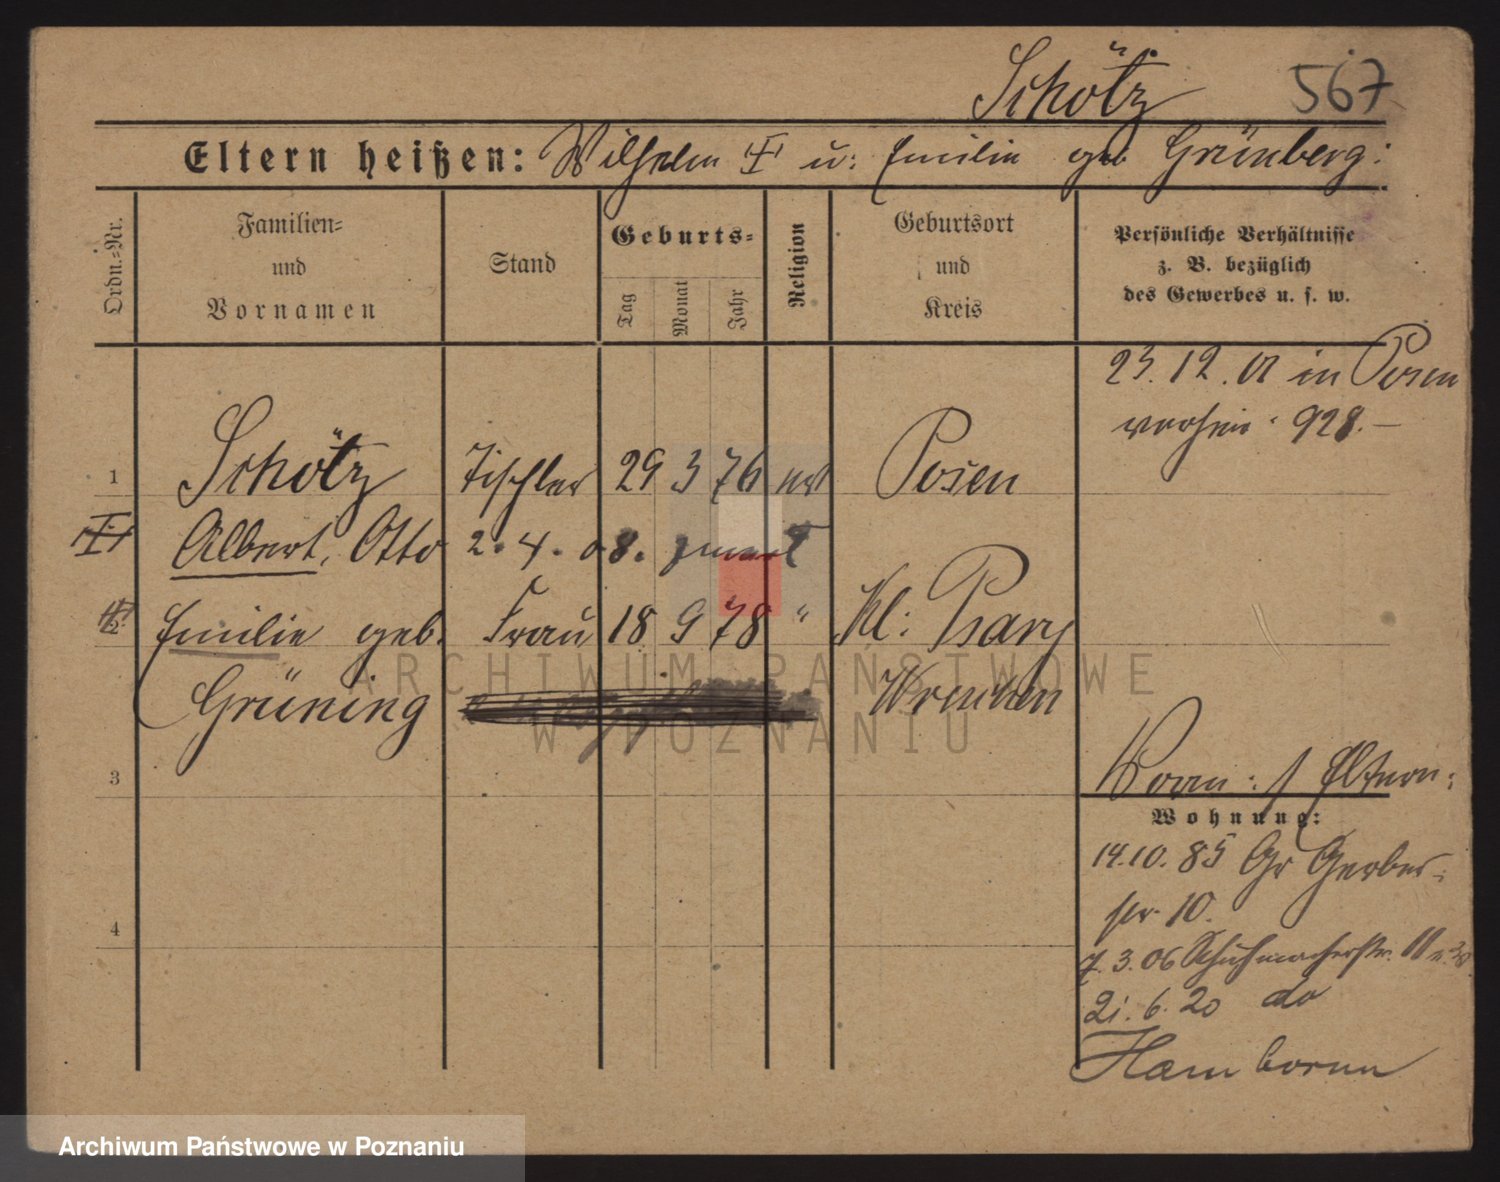 Schötz 567
Eltern heißen: Wilhelm u: Emilie geb Grünberg:
Ordn.-Nr.
Familien-
und
Vornamen
Stand
Geburts-
Tag
Monat
Jahr
Religion
Geburtsort
und
Kreis
Persönliche Verhältnisse
z. B. bezüglich
des Gewerbes u. s. w.
23. 12. 01 in Posen
928.—
1 Schötz Tischler 29 3 76 Posen
Albert, Otto 2. 4. 08.
2 Emilie geb. Frau 18 9 78 " Kl: Psary
Grüning Wreschen
3
Vorm: f Eltern:
Wohnung:
14.10. 85 Gr Gerber-
str. 10.
4
7. 3. 06 Schuhmacherstr. 11
21. 6. 20 do
Hamborn
ARCHIWUM PAŃSTWOWE
W POZNANIU
Archiwum Państwowe w Poznaniu